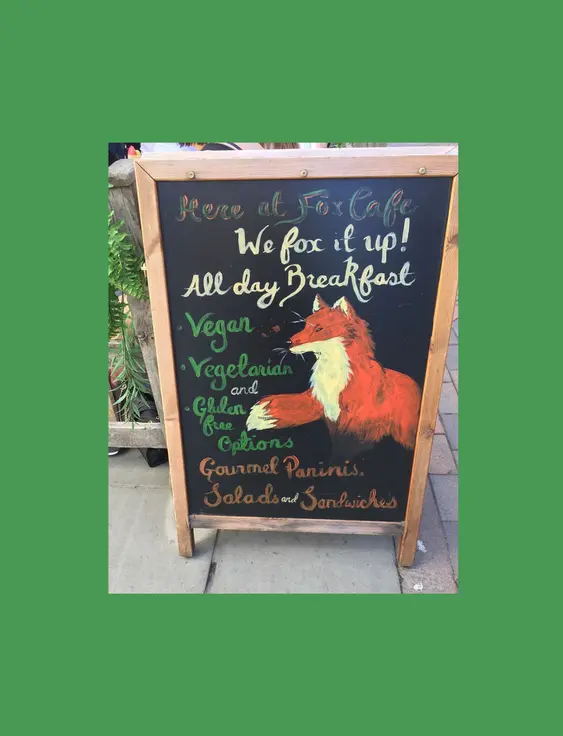 Here at Fox Cafe
We fox it up!
All day Breakfast
• Vegan
• Vegetarian
and
• Gluten
free
Options
Gourmet Paninis.
Salads and Sandwiches